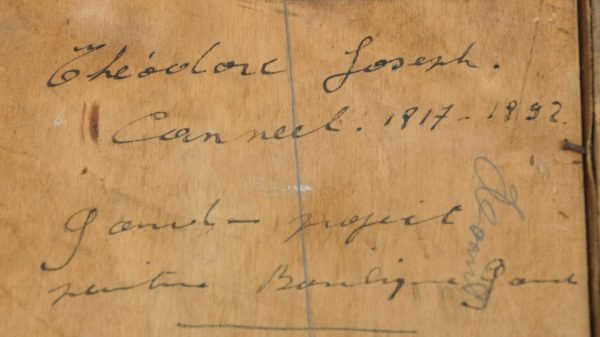 Théodore Joseph.
Canneel. 1817-1892.
Gand - projet
peinture Basilique Gand